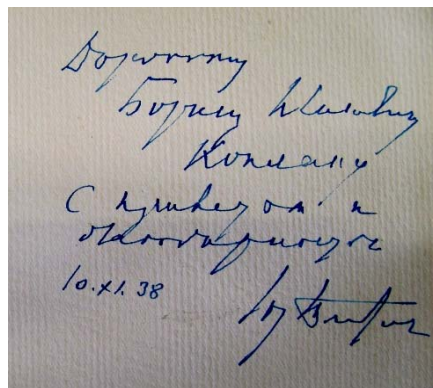 Дорогому
Борису
Коплану
С приветом и
благодарностью
10.XI.38
Юр